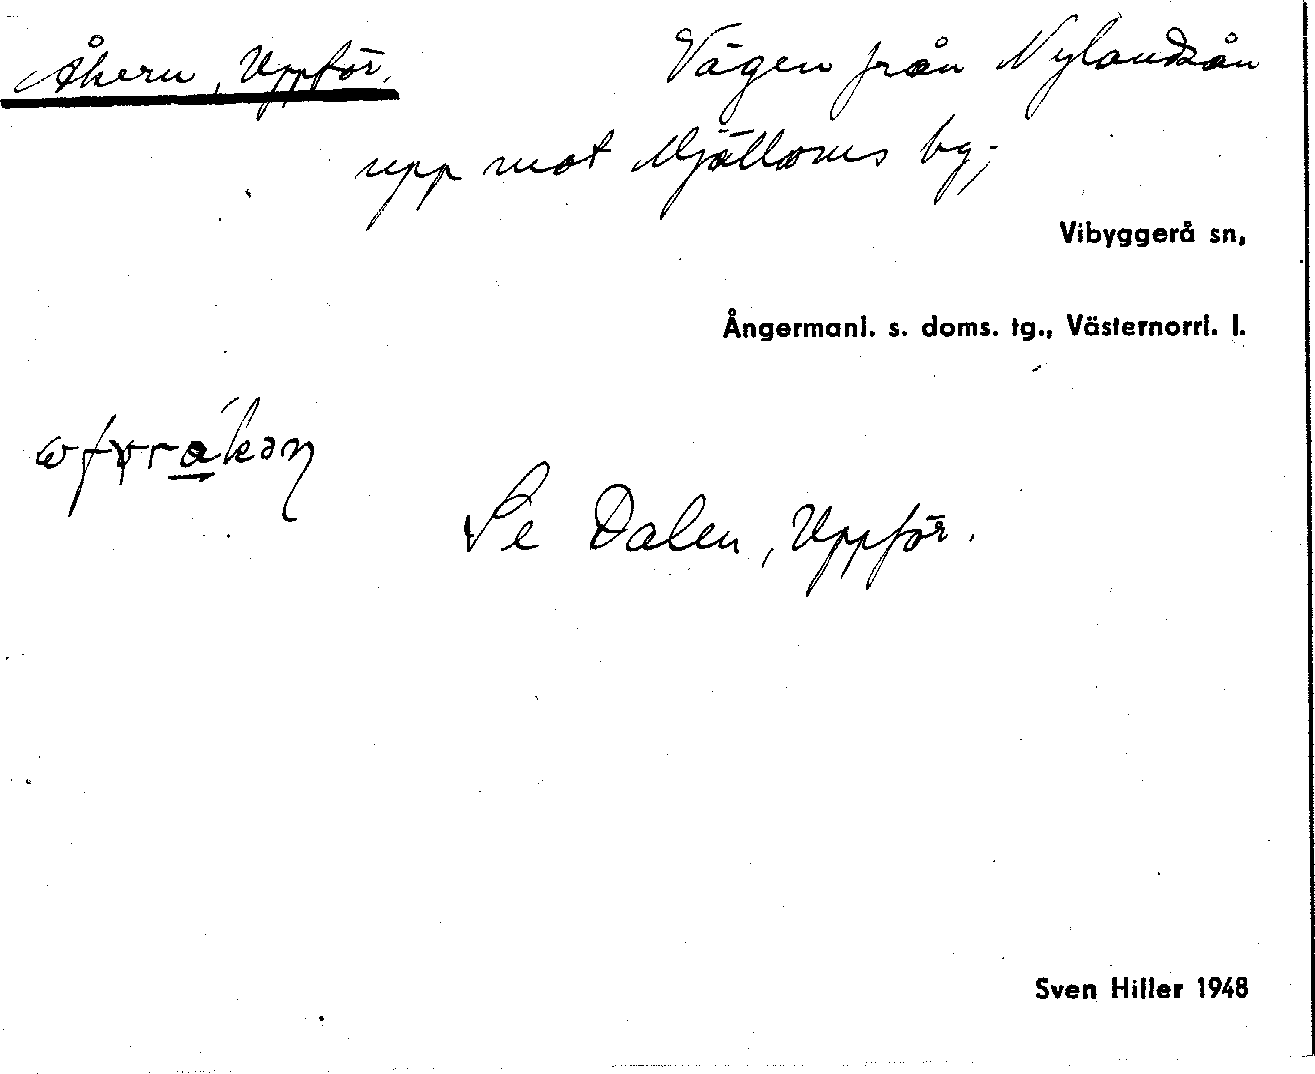 Åkern, Uppför. Vägen från Nylandsån
upp mot Mjälloms bg;
Vibyggerå sn,
Ångermanl. s. doms. tg., Västernorrl. l.
Se Dalen, Uppför.
Sven Hiller 1948